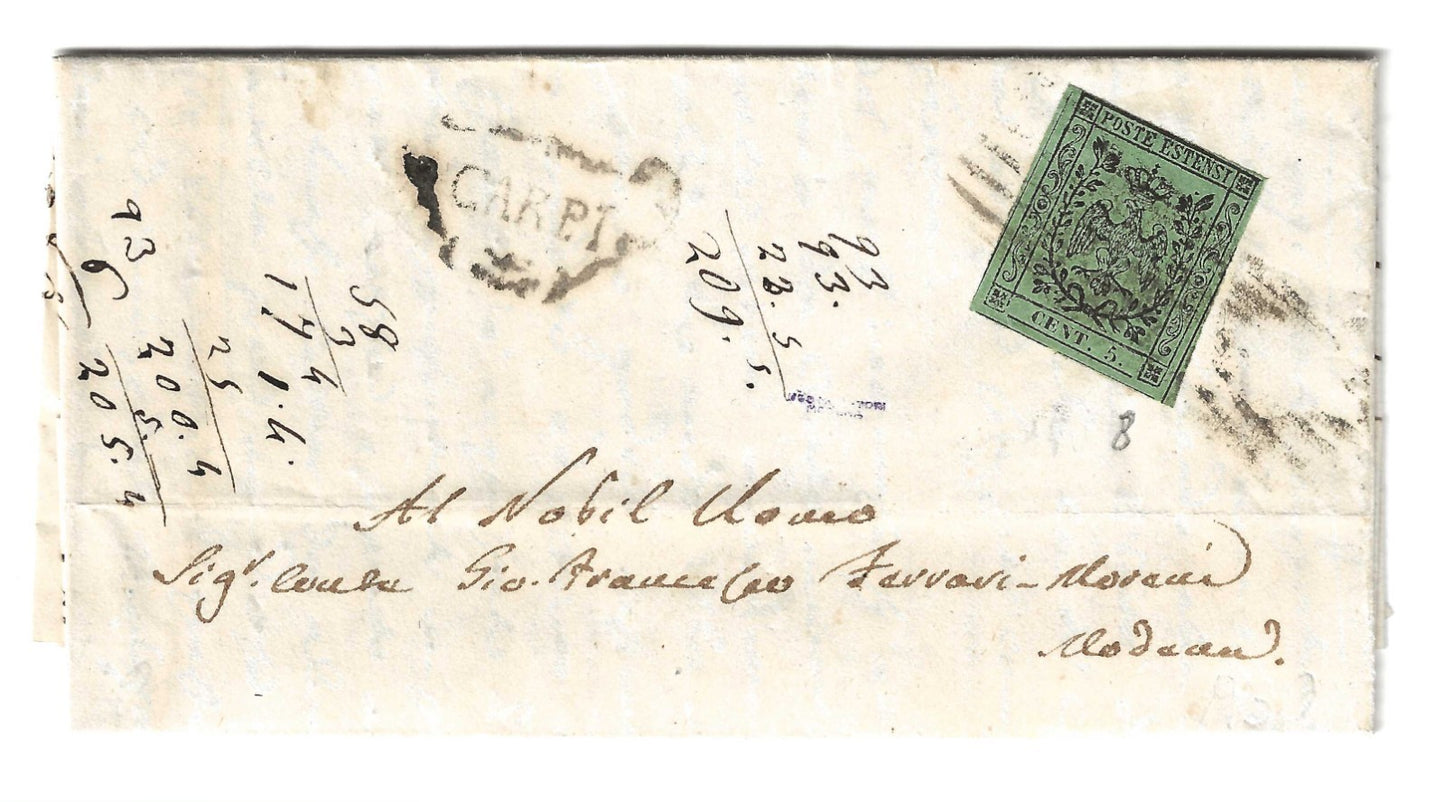 CARPI
POSTE ESTENSI
CENT. 5.
93
93.
22. 5
209. 5.
58
3
174
1. 4.
25
200. 4
5.
205. 4
93
6
8
Al Nobil Uomo
Sigr. Conte Gio. Francesco Ferrari-Moreni
Modena.